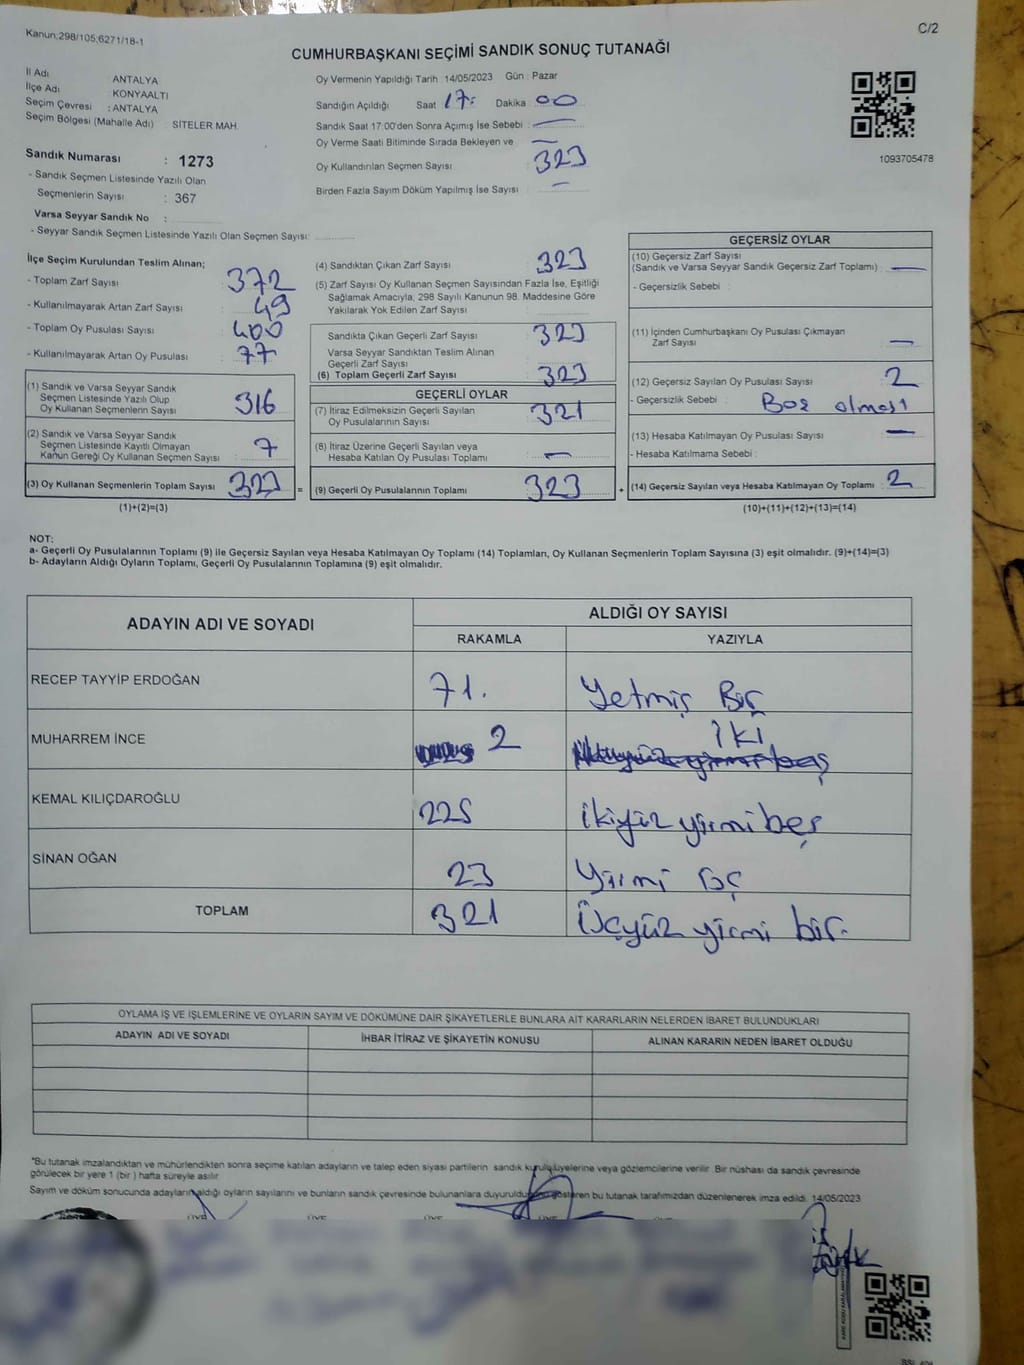 Kanun;298/105;6271/18-1
C/2
CUMHURBAŞKANI SEÇİMİ SANDIK SONUÇ TUTANAĞI
İl Adı ANTALYA
İlçe Adı KONYAALTI
Seçim Çevresi : ANTALYA
Seçim Bölgesi (Mahalle Adı) : SİTELER MAH.
Sandık Numarası : 1273
- Sandık Seçmen Listesinde Yazılı Olan
Seçmenlerin Sayısı : 367
Varsa Seyyar Sandık No :
- Seyyar Sandık Seçmen Listesinde Yazılı Olan Seçmen Sayısı:
Oy Vermenin Yapıldığı Tarih 14/05/2023 Gün : Pazar
Sandığın Açıldığı Saat 17: Dakika 00
Sandık Saat 17:00'den Sonra Açımış İse Sebebi : —
Oy Verme Saati Bitiminde Sırada Bekleyen ve —
Oy Kullandırılan Seçmen Sayısı 323
Birden Fazla Sayım Döküm Yapılmış İse Sayısı —
1093705478
İlçe Seçim Kurulundan Teslim Alınan;
- Toplam Zarf Sayısı 372
- Kullanılmayarak Artan Zarf Sayısı 49
- Toplam Oy Pusulası Sayısı 400
- Kullanılmayarak Artan Oy Pusulası 77
(1) Sandık ve Varsa Seyyar Sandık
Seçmen Listesinde Yazılı Olup
Oy Kullanan Seçmenlerin Sayısı 316
(2) Sandık ve Varsa Seyyar Sandık
Seçmen Listesinde Kayıtlı Olmayan
Kanun Gereği Oy Kullanan Seçmen Sayısı 7
(3) Oy Kullanan Seçmenlerin Toplam Sayısı 323 =
(1)+(2)=(3)
(4) Sandıktan Çıkan Zarf Sayısı 323
(5) Zarf Sayısı Oy Kullanan Seçmen Sayısından Fazla İse, Eşitliği
Sağlamak Amacıyla, 298 Sayılı Kanunun 98. Maddesine Göre
Yakılarak Yok Edilen Zarf Sayısı
Sandıkta Çıkan Geçerli Zarf Sayısı 323
Varsa Seyyar Sandıktan Teslim Alınan
Geçerli Zarf Sayısı
(6) Toplam Geçerli Zarf Sayısı 323
GEÇERLİ OYLAR
(7) İtiraz Edilmeksizin Geçerli Sayılan
Oy Pusulalarının Sayısı 321
(8) İtiraz Üzerine Geçerli Sayılan veya
Hesaba Katılan Oy Pusulası Toplamı —
(9) Geçerli Oy Pusulalarının Toplamı 323 +
GEÇERSİZ OYLAR
(10) Geçersiz Zarf Sayısı
(Sandık ve Varsa Seyyar Sandık Geçersiz Zarf Toplamı) —
- Geçersizlik Sebebi :
(11) İçinden Cumhurbaşkanı Oy Pusulası Çıkmayan
Zarf Sayısı —
(12) Geçersiz Sayılan Oy Pusulası Sayısı 2
- Geçersizlik Sebebi : Boş olması
(13) Hesaba Katılmayan Oy Pusulası Sayısı —
- Hesaba Katılmama Sebebi :
(14) Geçersiz Sayılan veya Hesaba Katılmayan Oy Toplamı 2
(10)+(11)+(12)+(13)=(14)
NOT:
a- Geçerli Oy Pusulalarının Toplamı (9) ile Geçersiz Sayılan veya Hesaba Katılmayan Oy Toplamı (14) Toplamları, Oy Kullanan Seçmenlerin Toplam Sayısına (3) eşit olmalıdır. (9)+(14)=(3)
b- Adayların Aldığı Oyların Toplamı, Geçerli Oy Pusulalarının Toplamına (9) eşit olmalıdır.
ADAYIN ADI VE SOYADI ALDIĞI OY SAYISI
RAKAMLA YAZIYLA
RECEP TAYYİP ERDOĞAN 71. Yetmiş Bir
MUHARREM İNCE 2 İki
KEMAL KILIÇDAROĞLU 225 ikiyüz yirmi beş
SİNAN OĞAN 23 Yirmi üç
TOPLAM 321 Üçyüz yirmi bir.
OYLAMA İŞ VE İŞLEMLERİNE VE OYLARIN SAYIM VE DÖKÜMÜNE DAİR ŞİKAYETLERLE BUNLARA AİT KARARLARIN NELERDEN İBARET BULUNDUKLARI
ADAYIN ADI VE SOYADI İHBAR İTİRAZ VE ŞİKAYETİN KONUSU ALINAN KARARIN NEDEN İBARET OLDUĞU
*Bu tutanak imzalandıktan ve mühürlendikten sonra seçime katılan adayların ve talep eden siyasi partilerin sandık kurulu üyelerine veya gözlemcilerine verilir. Bir nüshası da sandık çevresinde
görülecek bir yere 1 (bir) hafta süreyle asılır.
Sayım ve döküm sonucunda adayların aldığı oyların sayılarını ve bunların sandık çevresinde bulunanlara duyurulduğunu gösteren bu tutanak tarafımızdan düzenlenerek imza edildi. 14/05/2023
ÜYE ÜYE ÜYE ÜYE ÜYE